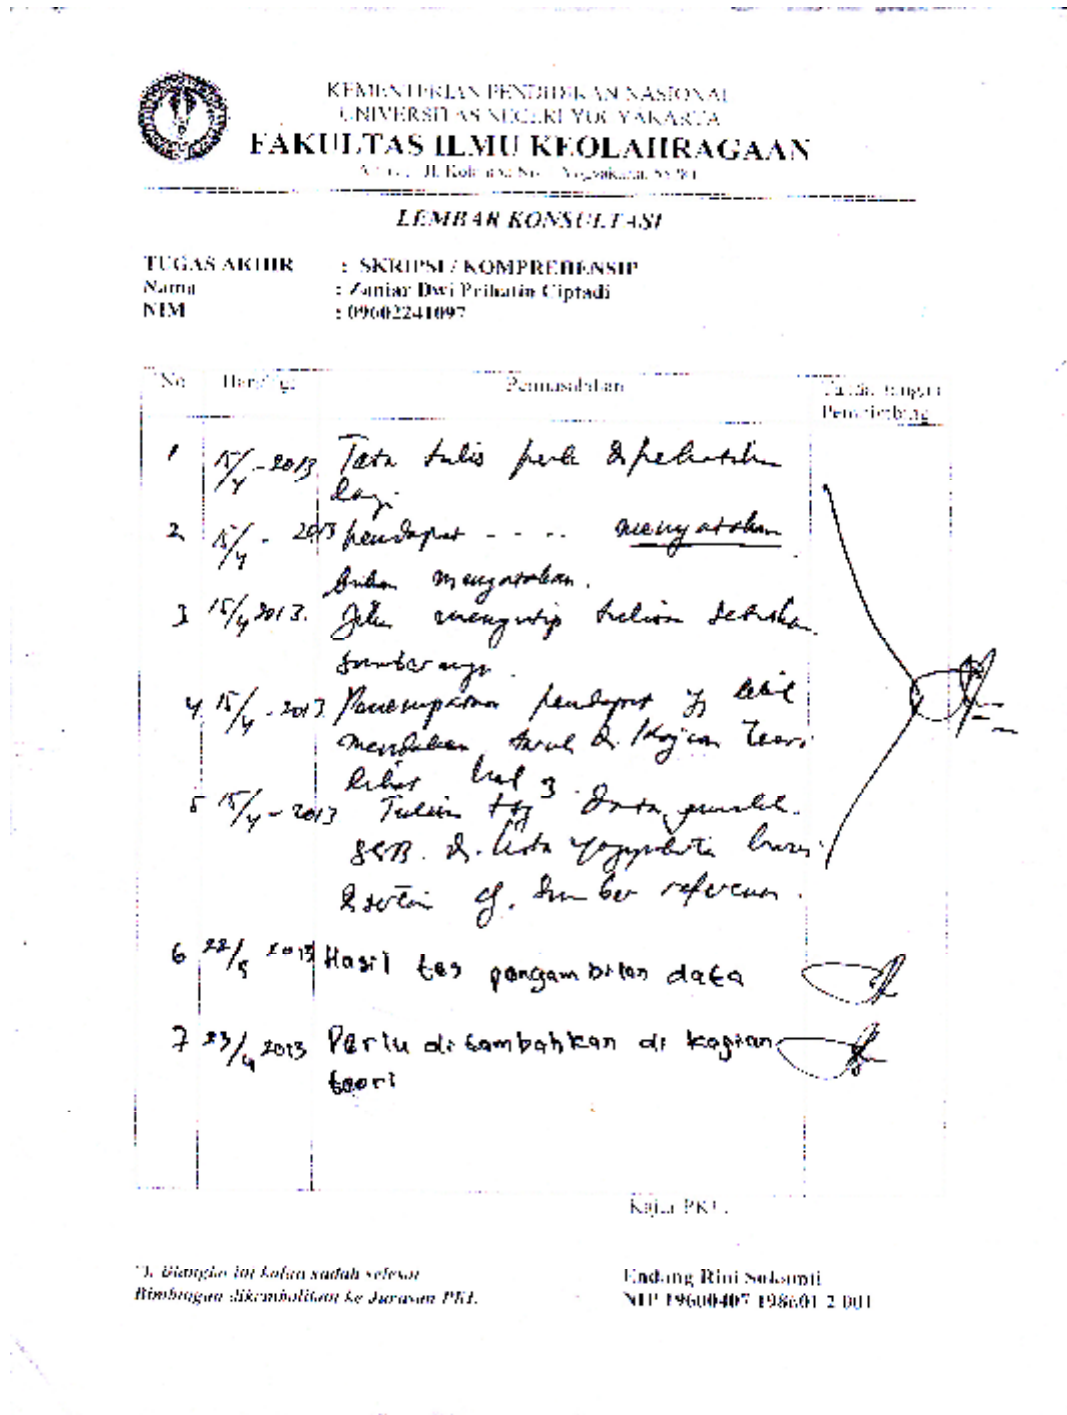 KEMENTERIAN PENDIDIKAN NASIONAL
UNIVERSITAS NEGERI YOGYAKARTA
FAKULTAS ILMU KEOLAHRAGAAN
Yogyakarta
LEMBAR KONSULTASI
TUGAS AKHIR : SKRIPSI / KOMPREHENSIP
Nama : Zaniar Dwi Prihatin Ciptadi
NIM : 09602241097
No Hari/Tgl Permasalahan Tanda tangan
Pembimbing
1 15/4-2013 Tata tulis perlu diperhatikan
lagi
2 15/4 - 2013 pendapat - - - - menyatakan
bukan mengatakan.
3 15/4 2013. Jika mengutip tulisan sebutkan
sumbernya.
4 15/4-2013 Penempatan pendapat yg lebih
di Kajian Teori
lihat hal 3.
5 15/4-2013 Tulisan ttg Data
SSB. di Kota Yogyakarta harus
disertai dg. Sumber referensi.
6 22/5 2013 Hasil tes pengambilan data
7 23/4 2013 Perlu ditambahkan di kagian
teori
Kajur PKL.
*). Blangko ini kalau sudah selesai
Bimbingan dikembalikan ke Jurusan PKL
Endang Rini Sukamti
NIP 19600407 198601 2 001